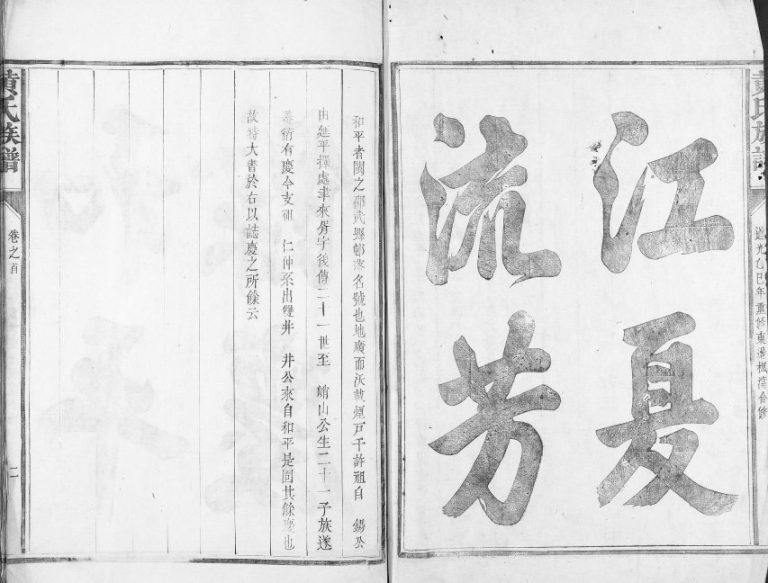 黄氏族譜
道光乙巳年重修東港楓灣合修
江夏
流芳
和平者閩之邵武縣鄉落名號也地廣而沃故煙戶千許祖自 錫公
由延平擇處聿來胥宇後傳二十一世至 峭山公生二十一子族遂
蕃衍有慶今支祖 仁仲系出雙井 井公來自和平是同其餘慶也
故特大書於右以誌慶之所餘云
黄氏族譜
卷之首
二